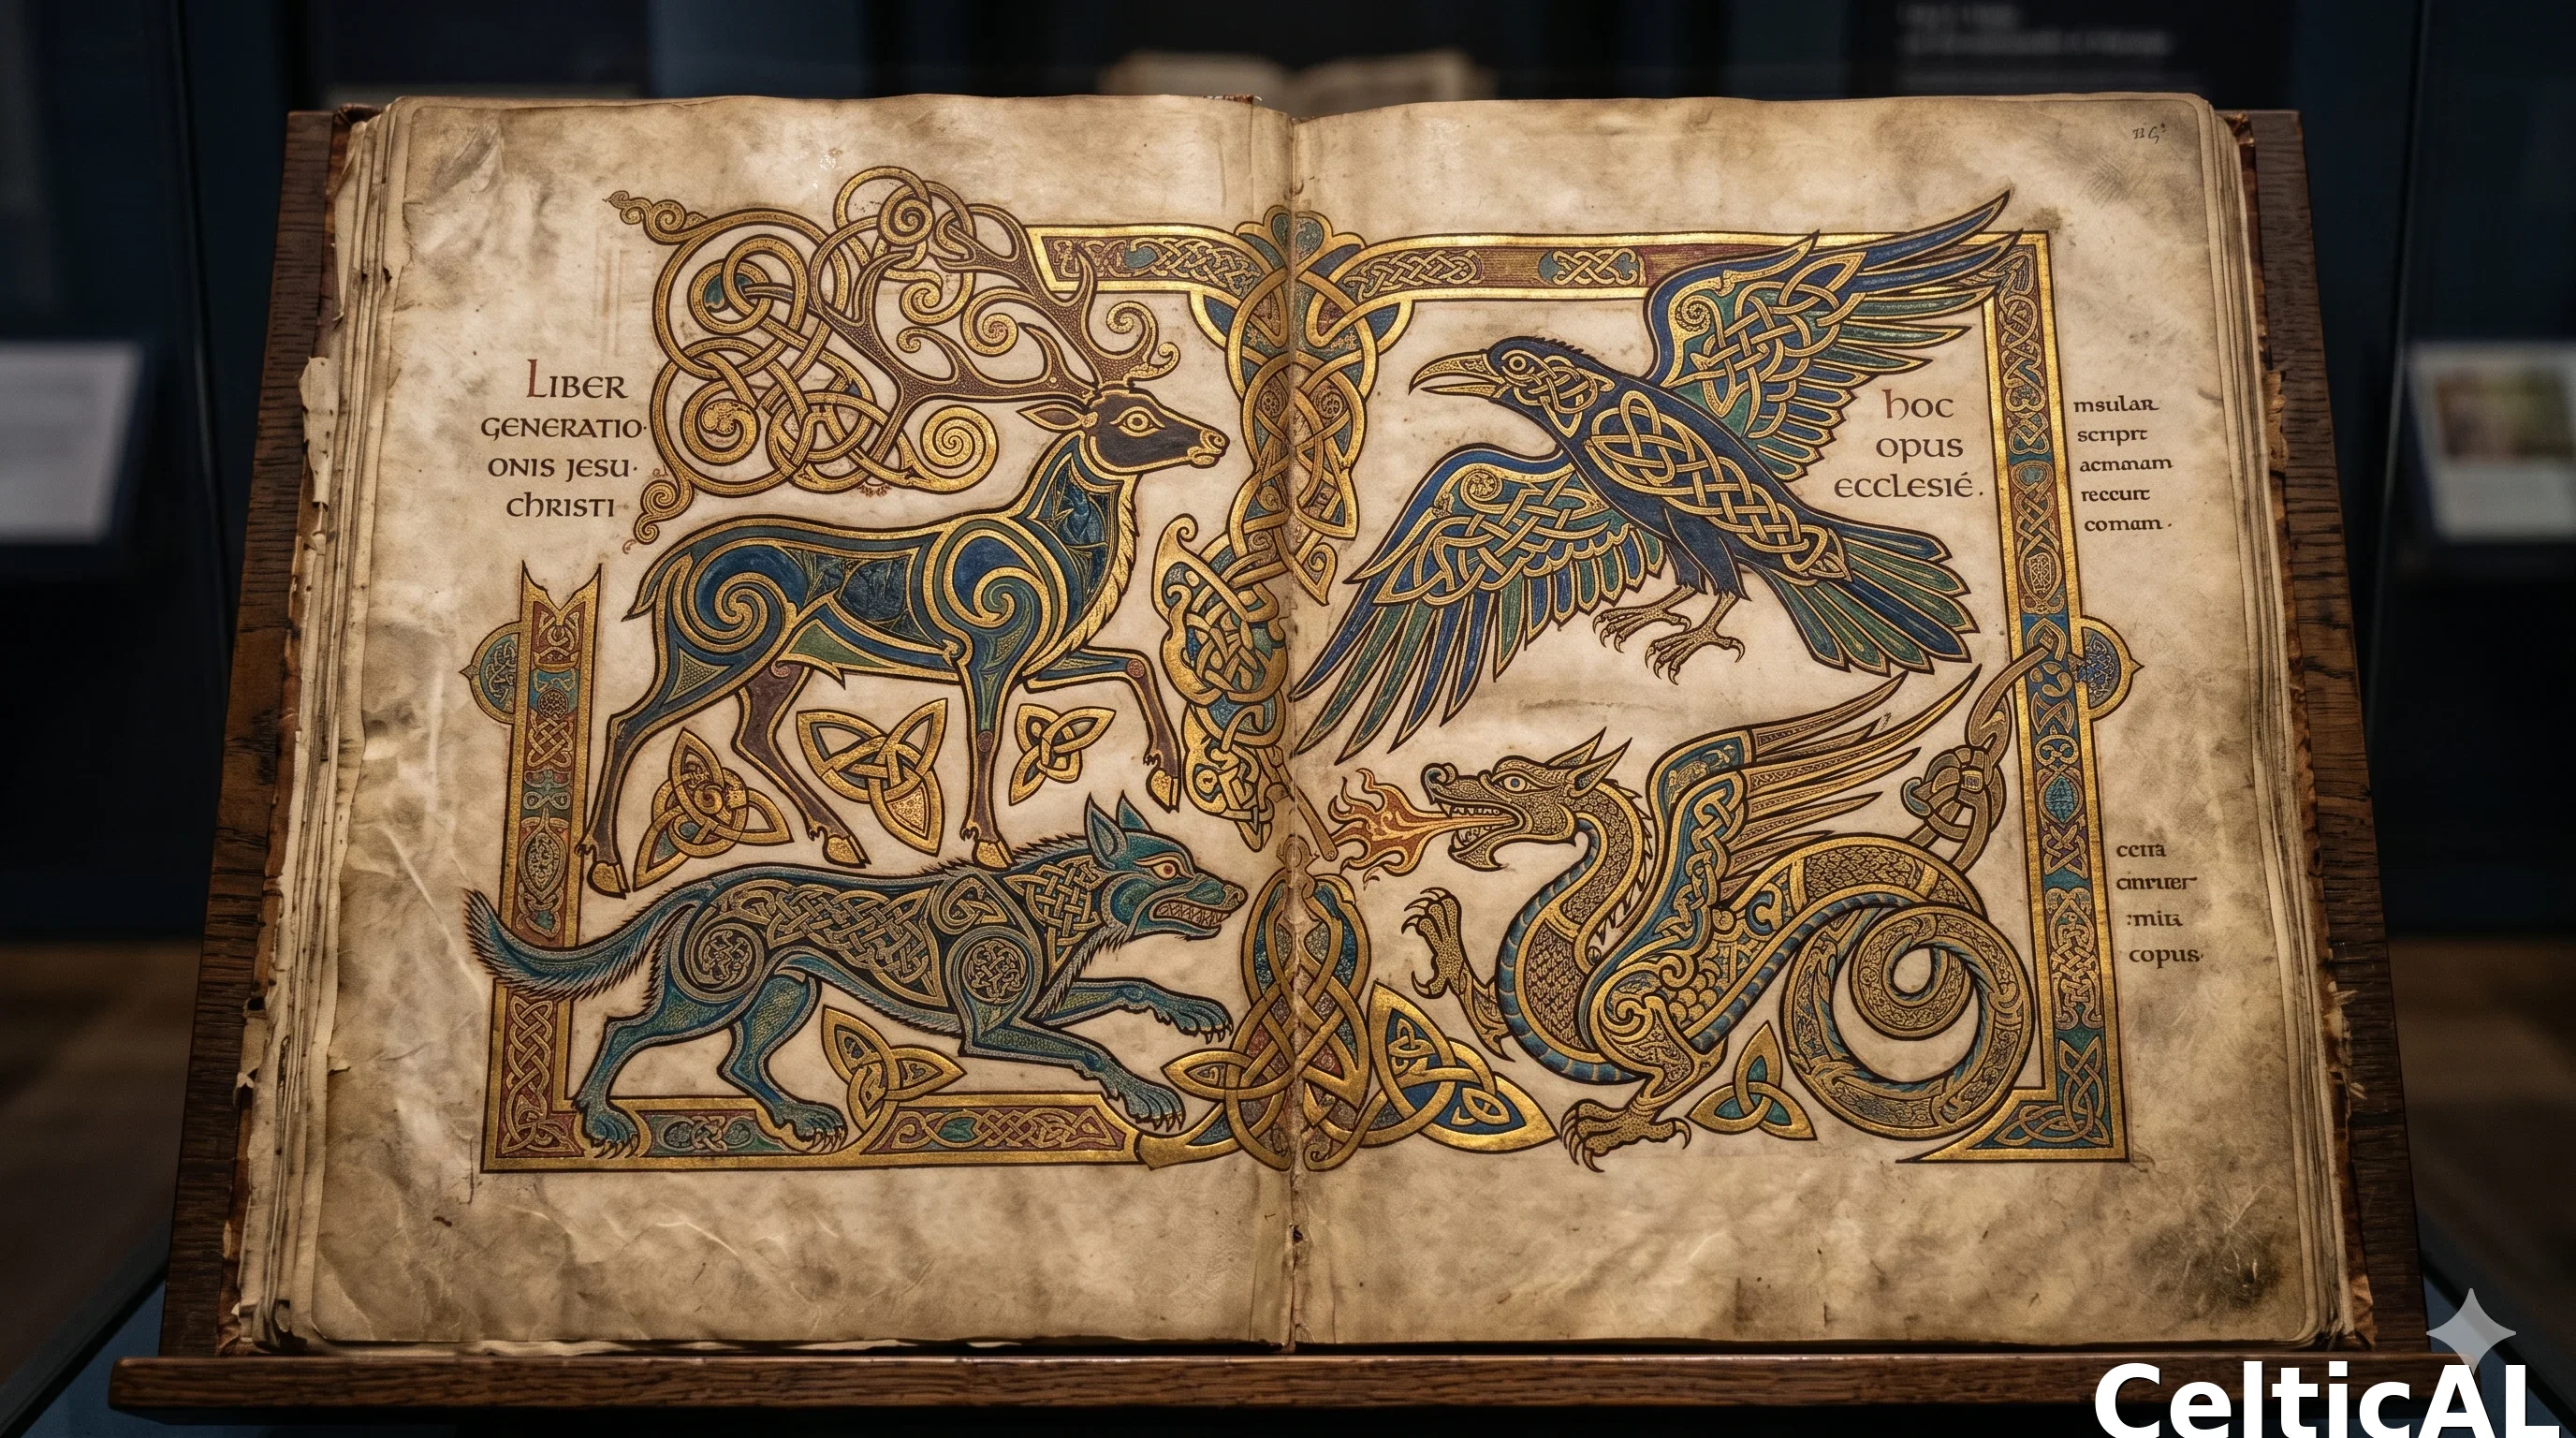 LIBER
GENERATIO·
ONIS JESU·
CHRISTI
hoc
opus
ecclesié.
msular
scriprt
acmmam
reccurt
comam.
ccrra
cmruer
:miu
copus.
CelticAL